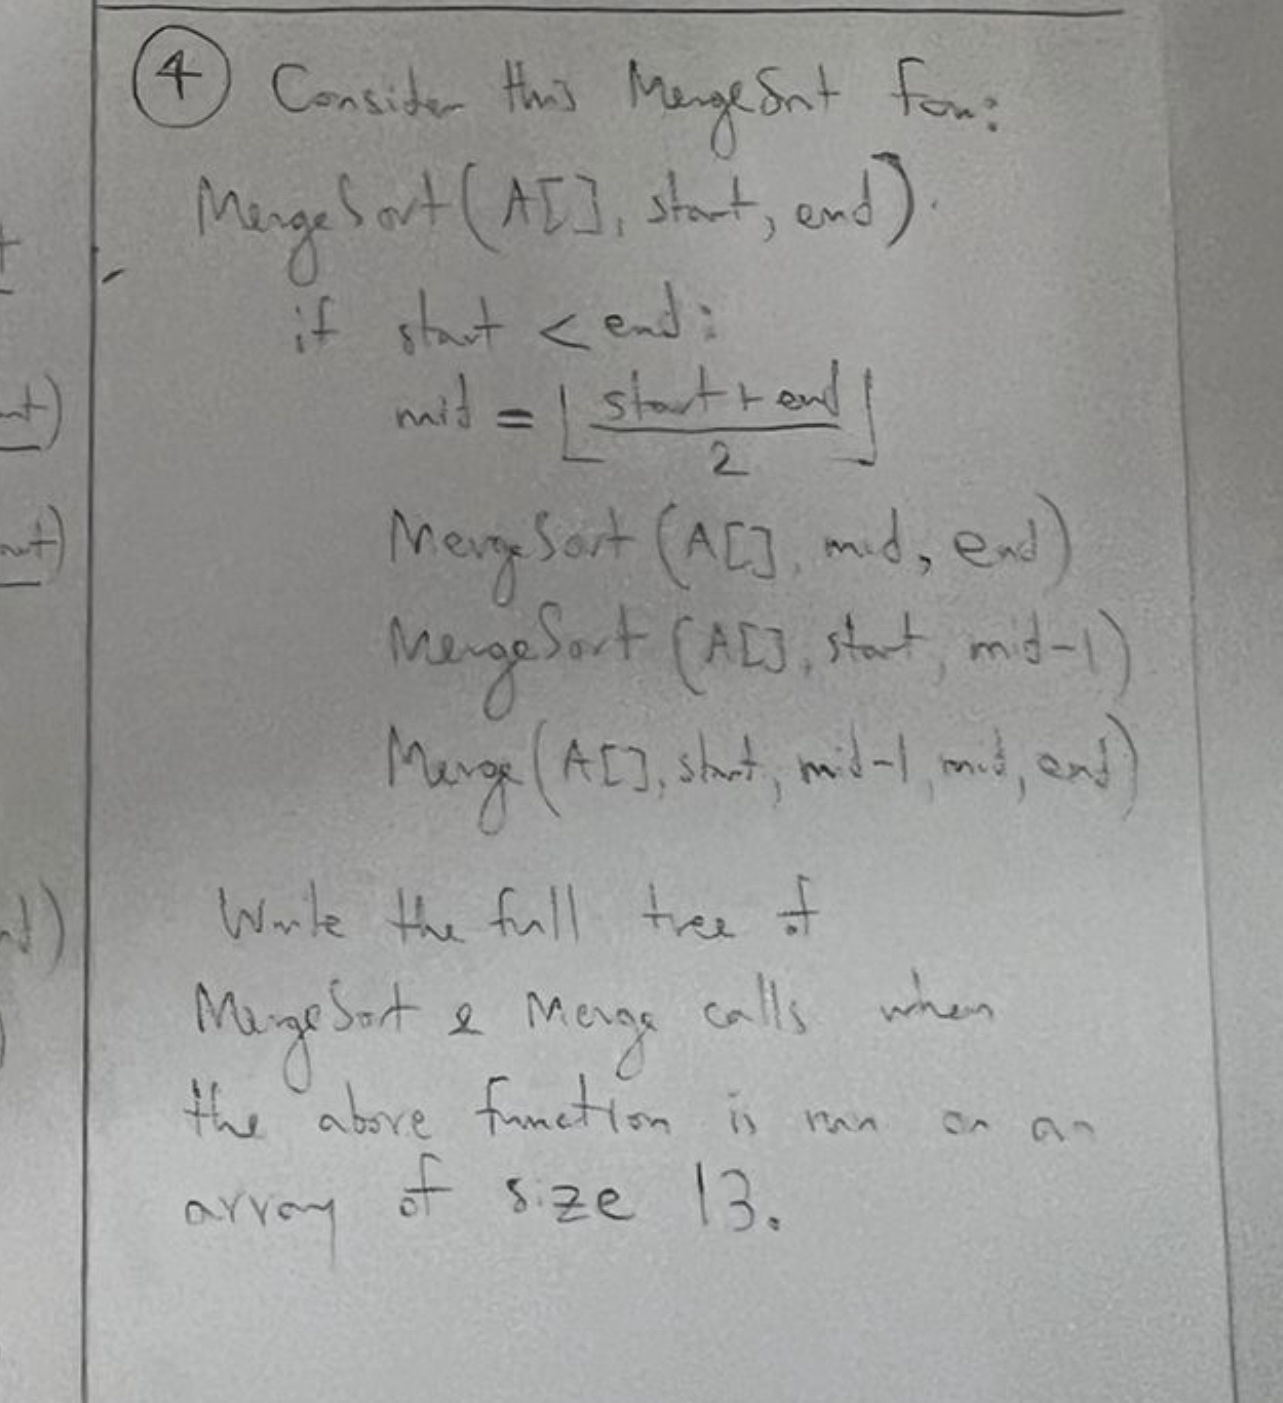 ④ Consider this MergeSort fcn:
MergeSort(A[], start, end).
if start < end:
mid = ⌊(start + end)/2⌋
MergeSort(A[], mid, end)
MergeSort(A[], start, mid-1)
Merge(A[], start, mid-1, mid, end)
Write the full tree of
MergeSort & Merge calls when
the above function is run on an
array of size 13.